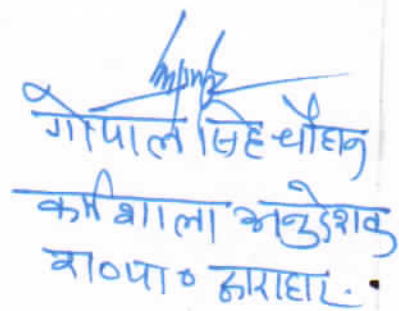 गोपाल सिंह चौहान
कर्मशाला अनुदेशक
रा०पा० द्वाराहाट.